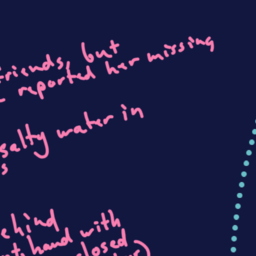 friends, but
reported her missing
salty water in
s
ehind
hand with
closed